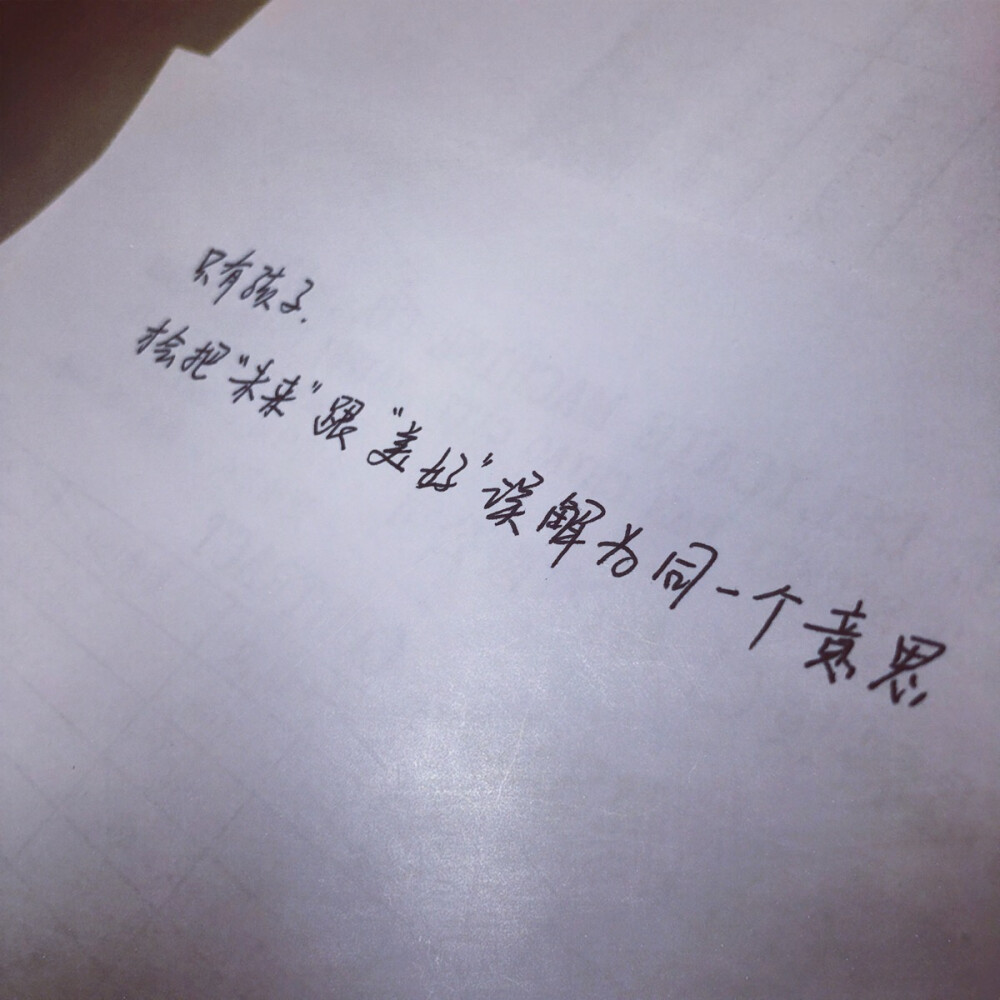 只有孩子.
才会把"未来"跟"美好"误解为同一个意思